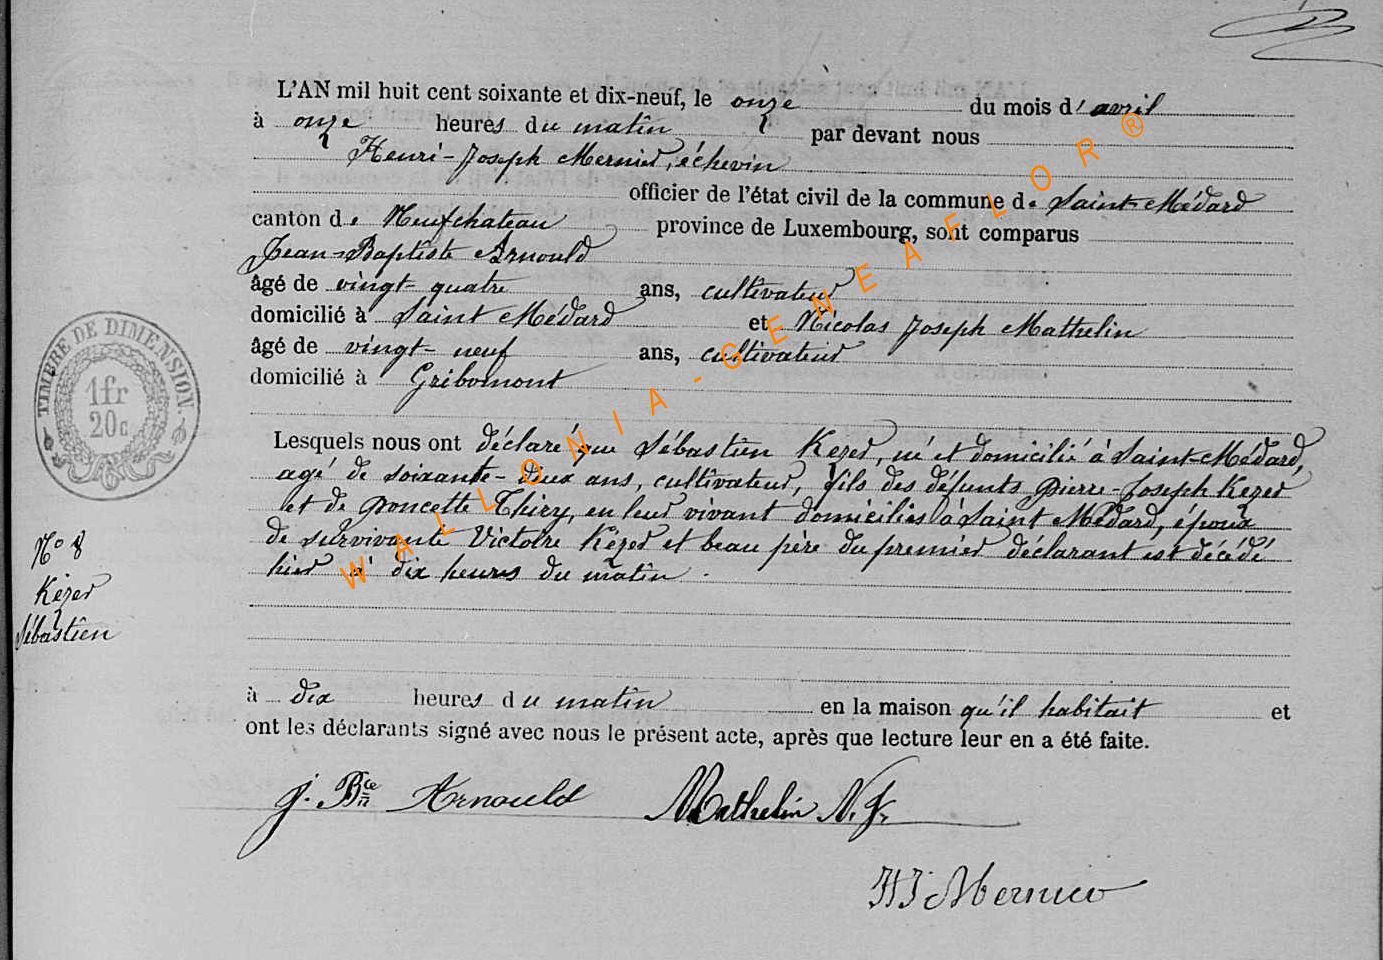 L'AN mil huit cent soixante et dix-neuf, le onze du mois d'avril
à onze heures du matin par devant nous
Henri-Joseph Mernier, échevin
officier de l'état civil de la commune de Saint-Médard
canton de Neufchateau province de Luxembourg, sont comparus
Jean-Baptiste Arnould
âgé de vingt-quatre ans, cultivateur
domicilié à Saint Médard et Nicolas Joseph Mathelin
âgé de vingt-neuf ans, cultivateur
domicilié à Gribomont
Lesquels nous ont déclaré que Sébastien Kezer, né et domicilié à Saint-Médard,
agé de soixante-deux ans, cultivateur, fils des défunts Pierre-Joseph Kezer
et de Poncette Thiry, en leur vivant domiciliés à Saint Médard, époux
de survivante Victoire Kézer et beau père du premier déclarant est décédé
hier à dix heures du matin.
à dix heures du matin en la maison qu'il habitait et
ont les déclarants signé avec nous le présent acte, après que lecture leur en a été faite.
J. Bte Arnould Mathelin N. J.
HJ Mernier
TIMBRE DE DIMENSION.
1fr
20c
N° 8
Kézer
Sébastien
WALLONIA-GENEAFLOR®